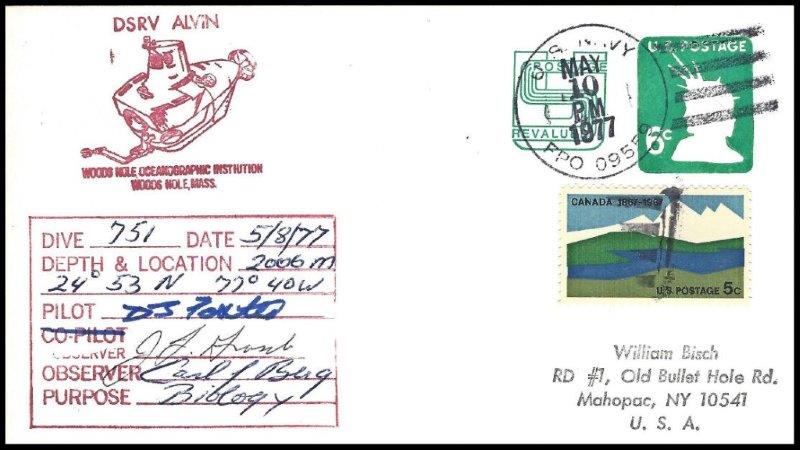 DSRV ALVIN
WOODS HOLE OCEANOGRAPHIC INSTITUTION
WOODS HOLE, MASS.
U.S. NAVY
MAY
10
PM
1977
FPO 09559
REVALUED
U.S. POSTAGE
5c
CANADA 1867-1967
U.S. POSTAGE 5c
DIVE 751 DATE 5/8/77
DEPTH & LOCATION 2006 m
24° 53 N 77° 40W
PILOT DJ Foster
CO-PILOT
OBSERVER J.F.
OBSERVER Carl J Berg
PURPOSE Biology
William Bisch
RD #1, Old Bullet Hole Rd.
Mahopac, NY 10541
U. S. A.